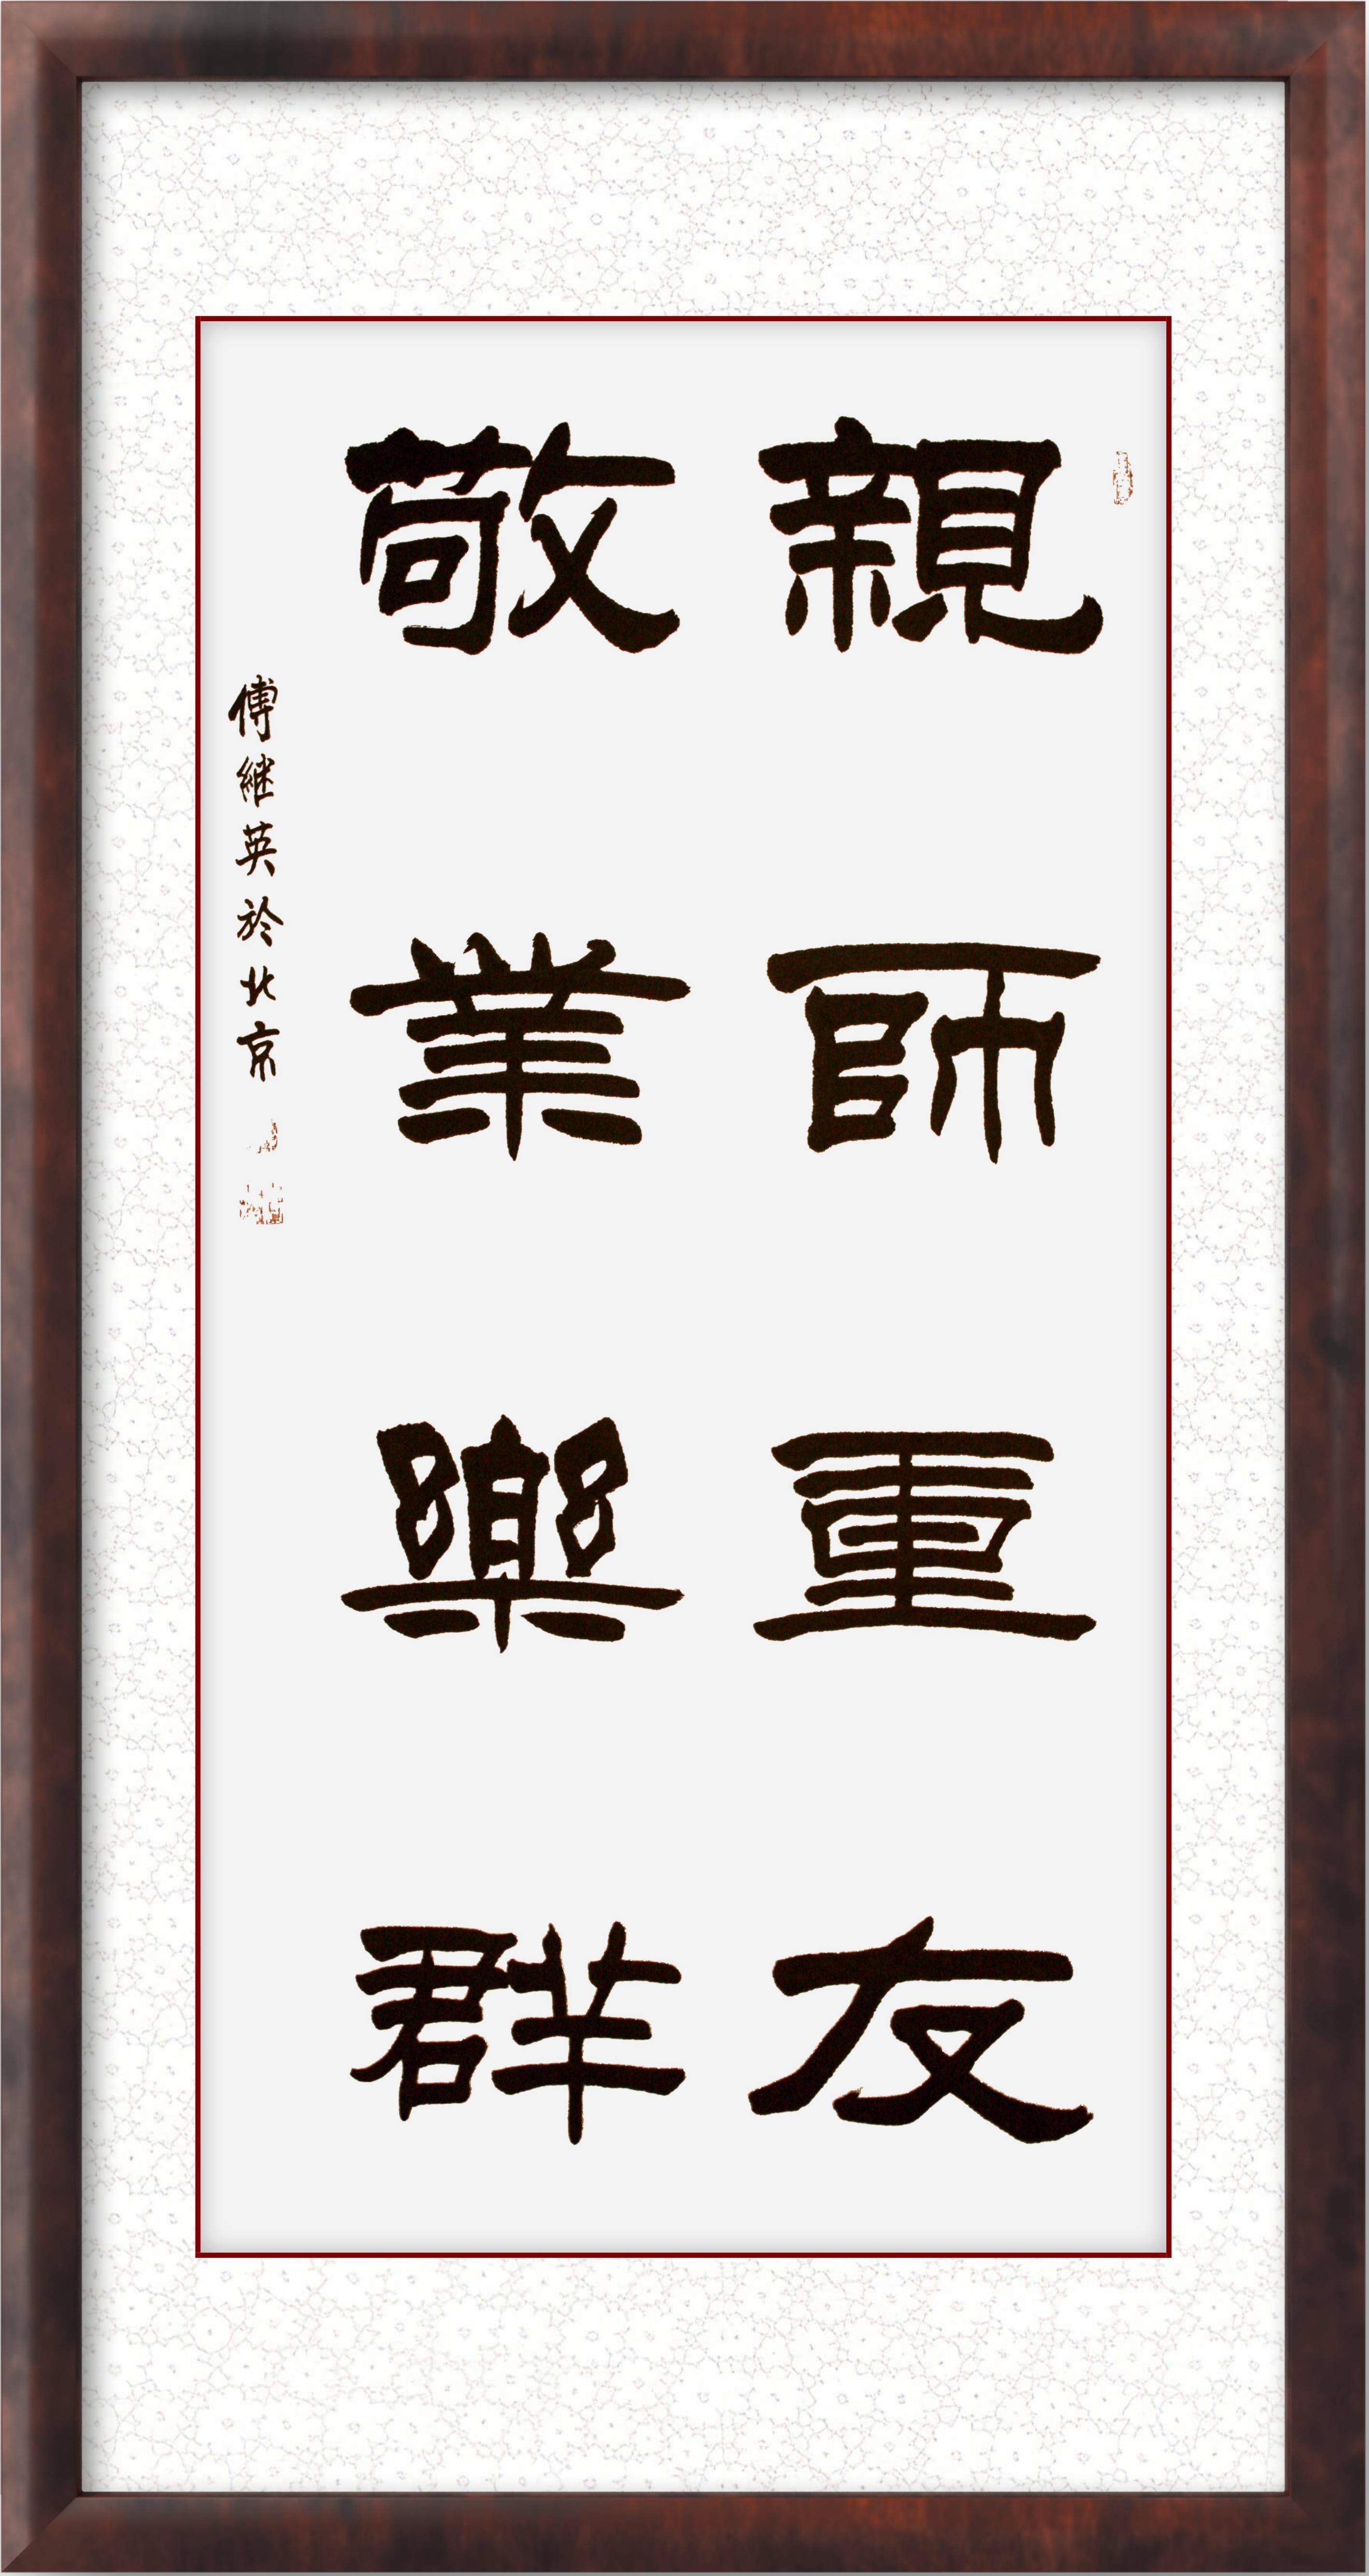 親師重友
敬業樂群
傅継英於北京